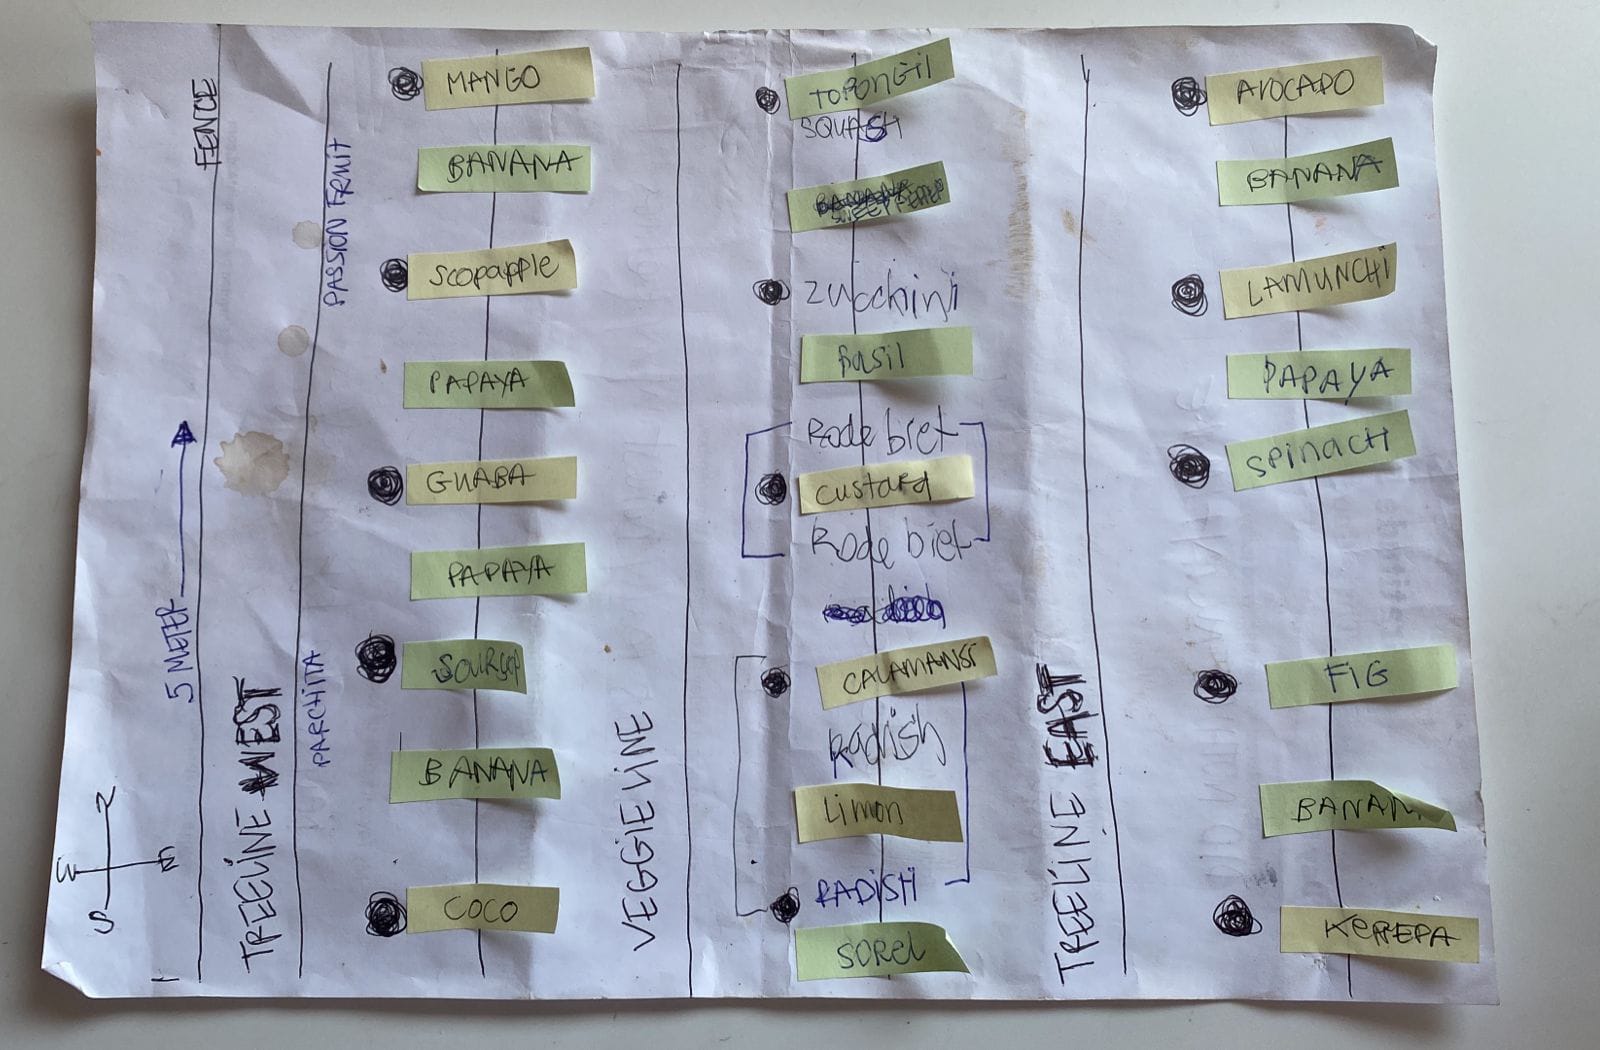 FENCE
5 METER
N
W
E
S
TREELINE WEST
PASSION FRUIT
PARCHITA
MANGO
BANANA
scopapple
PAPAYA
GUABA
PAPAYA
SOURSOP
BANANA
COCO
VEGGIELINE
SQUASH
zucchini
Basil
Rode biet
custard
Rode biet
CALAMANSI
Radish
Limon
RADISH
SOREL
TREELINE EAST
AVOCADO
BANANA
LAMUNCHI
PAPAYA
SPINACH
FIG
BANAN
KENEPA